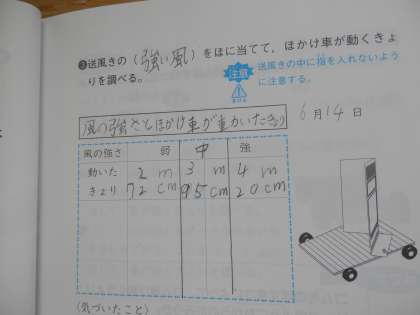 ❸送風きの(強い風)をほに当てて、ほかけ車が動くきょ
りを調べる。
注意
送風きの中に指を入れないよう
に注意する。
風の強さとほかけ車が動いたきょり
6月14日
風の強さ 弱 中 強
動いた 2 m 3 m 4 m
きょり 72 cm 95 cm 20 cm
(気づいたこと)